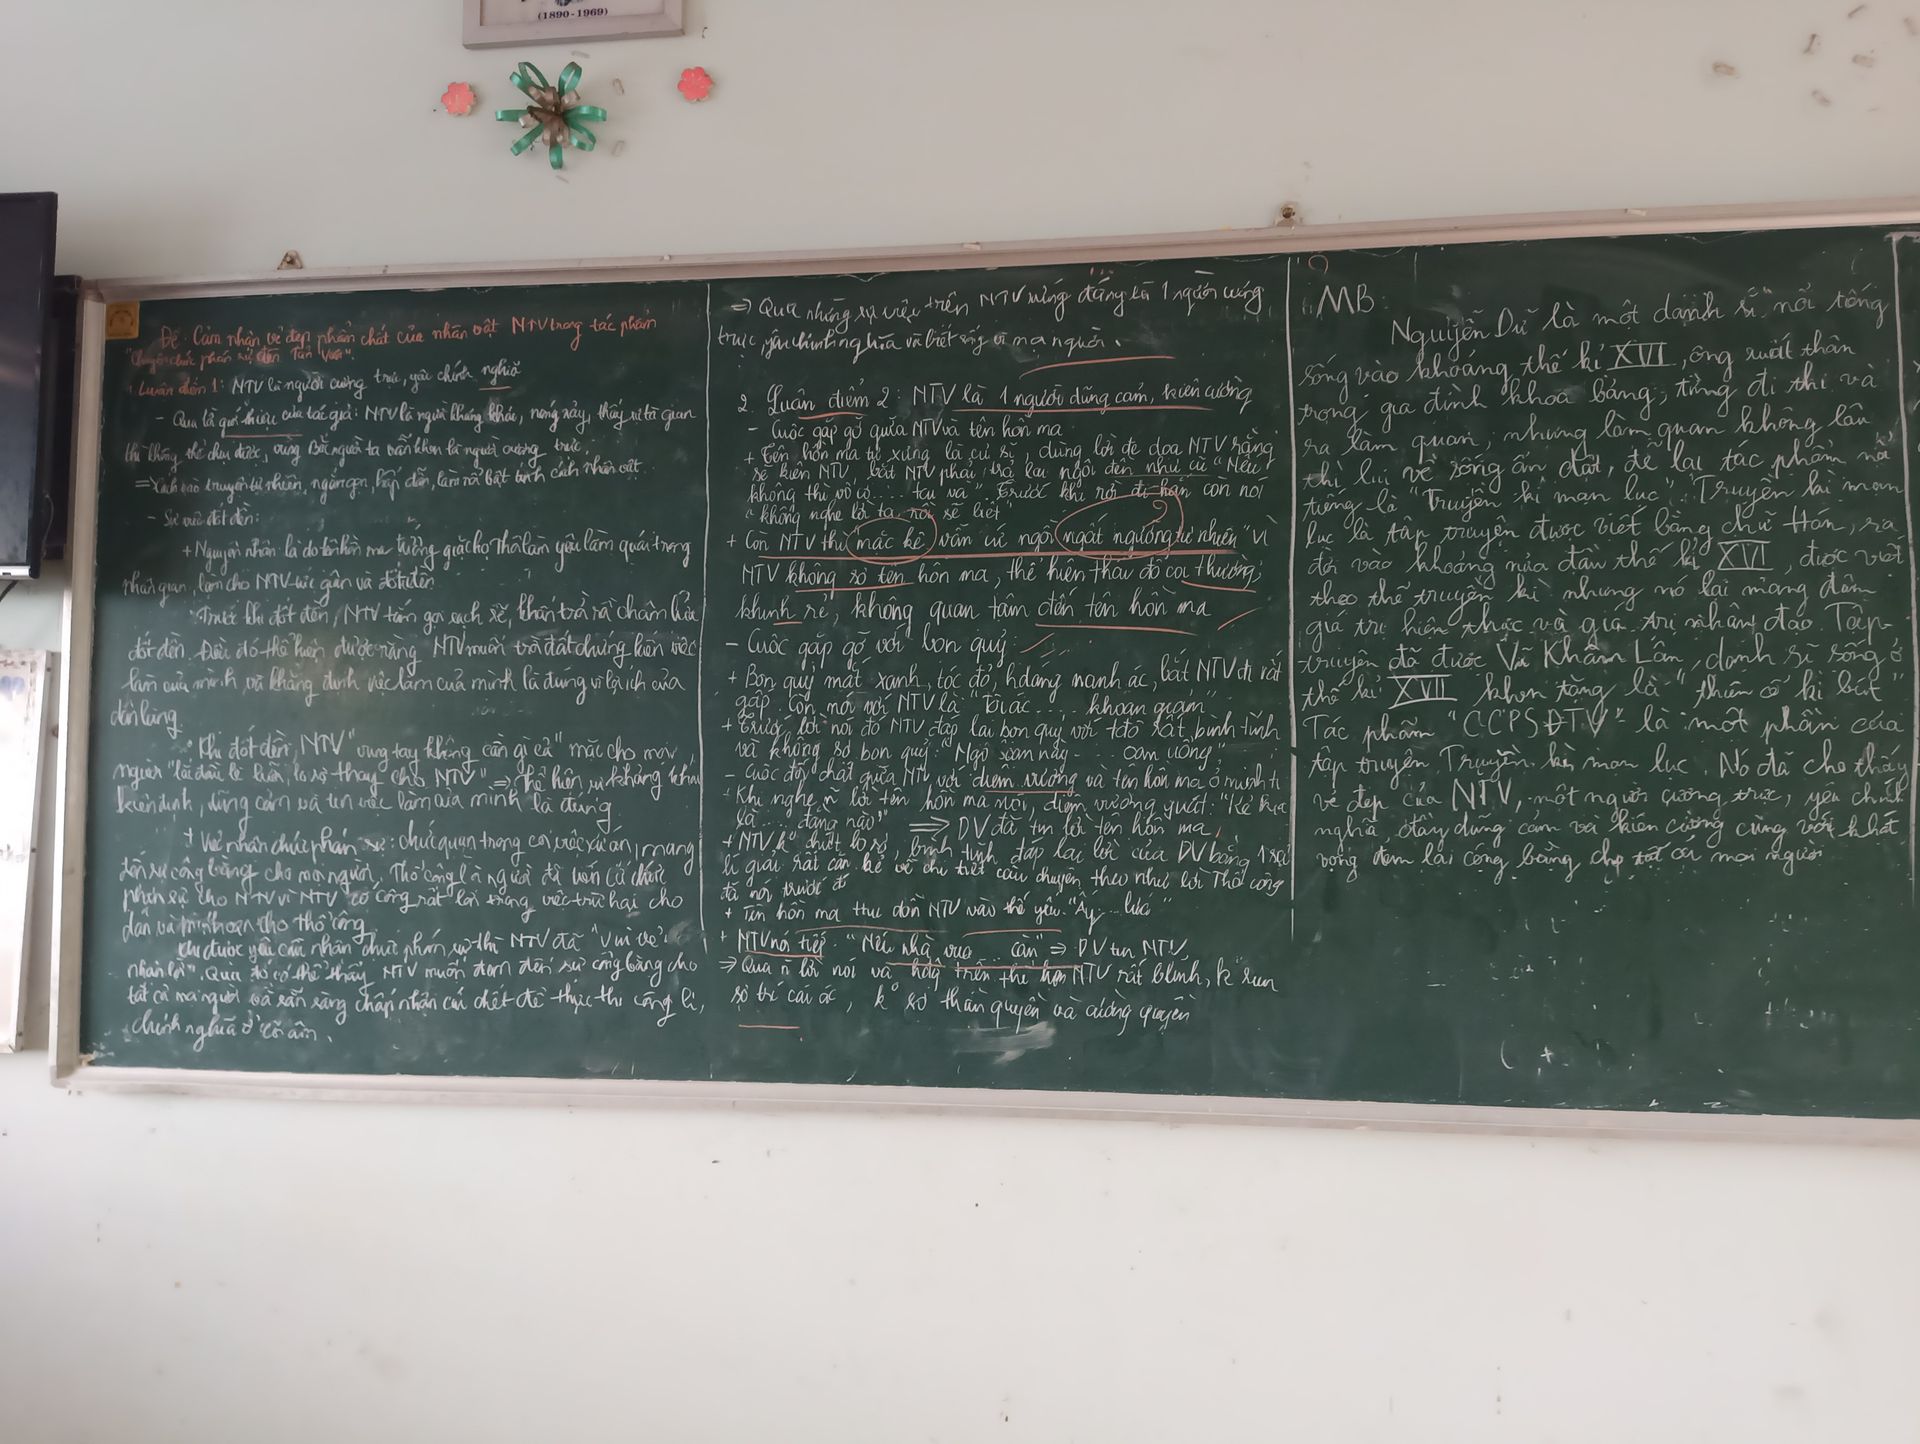 (1890-1969)
Đề: Cảm nhận vẻ đẹp phẩm chất của nhân vật NTV trong tác phẩm
"Chuyện chức phán sự đền Tản Viên".
Luận điểm 1: NTV là người cương trực, yêu chính nghĩa
- Qua lời giới thiệu của tác giả: NTV là người khảng khái, nóng nảy, thấy sự tà gian
thì không thể chịu được, vùng Bắc người ta vẫn khen là người cương trực.
=> Cách vào truyện tự nhiên, ngắn gọn, hấp dẫn, làm rõ bật tính cách nhân vật.
- Sự việc đốt đền:
+ Nguyên nhân là do tên hồn ma tướng giặc họ Thôi làm yêu làm quái trong
nhân gian, làm cho NTV tức giận và đốt đền
Trước khi đốt đền, NTV tắm gội sạch sẽ, khấn trời rồi châm lửa
đốt đền. Điều đó thể hiện được rằng NTV muốn trời đất chứng kiến việc
làm của mình và khẳng định việc làm của mình là đúng vì lợi ích của
dân làng.
Khi đốt đền, NTV "vung tay không cần gì cả" mặc cho mọi
người "lắc đầu lè lưỡi, lo sợ thay cho NTV" => thể hiện sự khảng khái
kiên định, dũng cảm và tin việc làm của mình là đúng
+ Việc nhận chức phán sự: chức quan trọng coi việc xử án, mang
đến sự công bằng cho mọi người. Thổ công là người đã tiến cử chức
phán sự cho NTV vì NTV có công rất lớn trong việc trừ hại cho
dân và minh oan cho thổ công
Khi được yêu cầu nhận chức phán sự thì NTV đã "vui vẻ
nhận lời". Qua đó có thể thấy NTV muốn đem đến sự công bằng cho
tất cả mọi người và sẵn sàng chấp nhận cái chết để thực thi công lí,
chính nghĩa ở cõi âm.
=> Qua những sự việc trên NTV xứng đáng là 1 người cương
trực, yêu chính nghĩa và biết sống vì mọi người.
2. Luận điểm 2: NTV là 1 người dũng cảm, kiên cường
- Cuộc gặp gỡ giữa NTV và tên hồn ma
+ Tên hồn ma tự xưng là cư sĩ, dùng lời đe dọa NTV rằng
sẽ kiện NTV, bắt NTV phải trả lại ngôi đền như cũ "Nếu
không thì vô cớ .... tai vạ". Trước khi rời đi hắn còn nói
"không nghe lời ta, rồi sẽ biết"
+ Còn NTV thì mặc kệ vẫn cứ ngồi ngất ngưởng tự nhiên "Vì
NTV không sợ tên hồn ma, thể hiện thái độ coi thường,
khinh rẻ, không quan tâm đến tên hồn ma
- Cuộc gặp gỡ với bọn quỷ
+ Bọn quỷ mắt xanh, tóc đỏ, h.dáng nanh ác, bắt NTV đi rất
gấp. Còn nói với NTV là "Tội ác .... khoan giảm"
+ Trước lời nói đó NTV đáp lại bọn quỷ với t.độ rất bình tĩnh
và không sợ bọn quỷ: "Ngô Soạn này ... oan uổng"
- Cuộc đối chất giữa NTV với diêm vương và tên hồn ma ở minh ti
+ Khi nghe ~ lời tên hồn ma nói, diêm vương quát: "Kẻ kia
là ... dạng nào" => DV đã tin lời tên hồn ma,
+ NTV k° chút lo sợ, bình tĩnh đáp lại lời của DV bằng 1 sự
lí giải rất cặn kẽ về chi tiết câu chuyện theo như lời Thổ công
đã nói trước đó
+ Tên hồn ma thì dồn NTV vào thế yếu "Ấy ... lửa"
+ NTV nói tiếp: "Nếu nhà vua ... càn" => DV tin NTV.
=> Qua ~ lời nói và hđg trên thể hiện NTV rất bình, k° run
sợ trc cái ác, k° sợ thần quyền và cường quyền
MB:
Nguyễn Dữ là một danh sĩ nổi tiếng
sống vào khoảng thế kỉ XVI, ông xuất thân
trong gia đình khoa bảng, từng đi thi và
ra làm quan, nhưng làm quan không lâu
thì lui về sống ẩn dật, để lại tác phẩm nổi
tiếng là "Truyền kì mạn lục". Truyền kì mạn
lục là tập truyện được viết bằng chữ Hán, ra
đời vào khoảng nửa đầu thế kỉ XVI, được viết
theo thể truyền kì nhưng nó lại mang đậm
giá trị hiện thực và giá trị nhân đạo. Tập
truyện đã được Vũ Khâm Lân, danh sĩ sống ở
thế kỉ XVII khen tặng là "thiên cổ kì bút".
Tác phẩm "CCPSĐTV" là một phần của
tập truyện Truyền kì mạn lục. Nó đã cho thấy
vẻ đẹp của NTV, một người cương trực, yêu chính
nghĩa, đầy dũng cảm và kiên cường cùng với khát
vọng đem lại công bằng cho tất cả mọi người